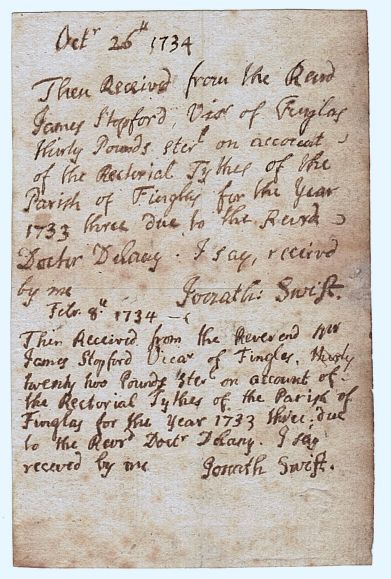 Octr 26th 1734
Then Received from the Revrd
James Stopford, Vicr of Finglas
thirty Pounds sterl on account
of the Rectorial Tythes of the
Parish of Finglas for the Year
1733 three due to the Revrd
Doctor Delany. I say, received
by me Jonath: Swift.
Febr. 8th 1734
Then Received from the Reverend Mr
James Stopford Vicar of Finglas, thirty
twenty two Pounds sterl on account of
the Rectorial Tythes of the Parish of
Finglas for the Year 1733 three, due
to the Revrd Doctr Delany. I say
receved by me Jonath Swift.